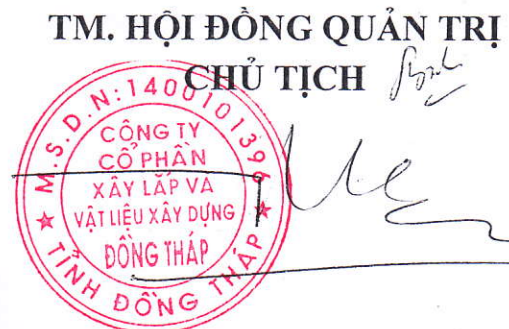 TM. HỘI ĐỒNG QUẢN TRỊ
CHỦ TỊCH
M.S.D.N:1400101396
CÔNG TY
CỔ PHẦN
XÂY LẮP VÀ
VẬT LIỆU XÂY DỰNG
ĐỒNG THÁP
TỈNH ĐỒNG THÁP